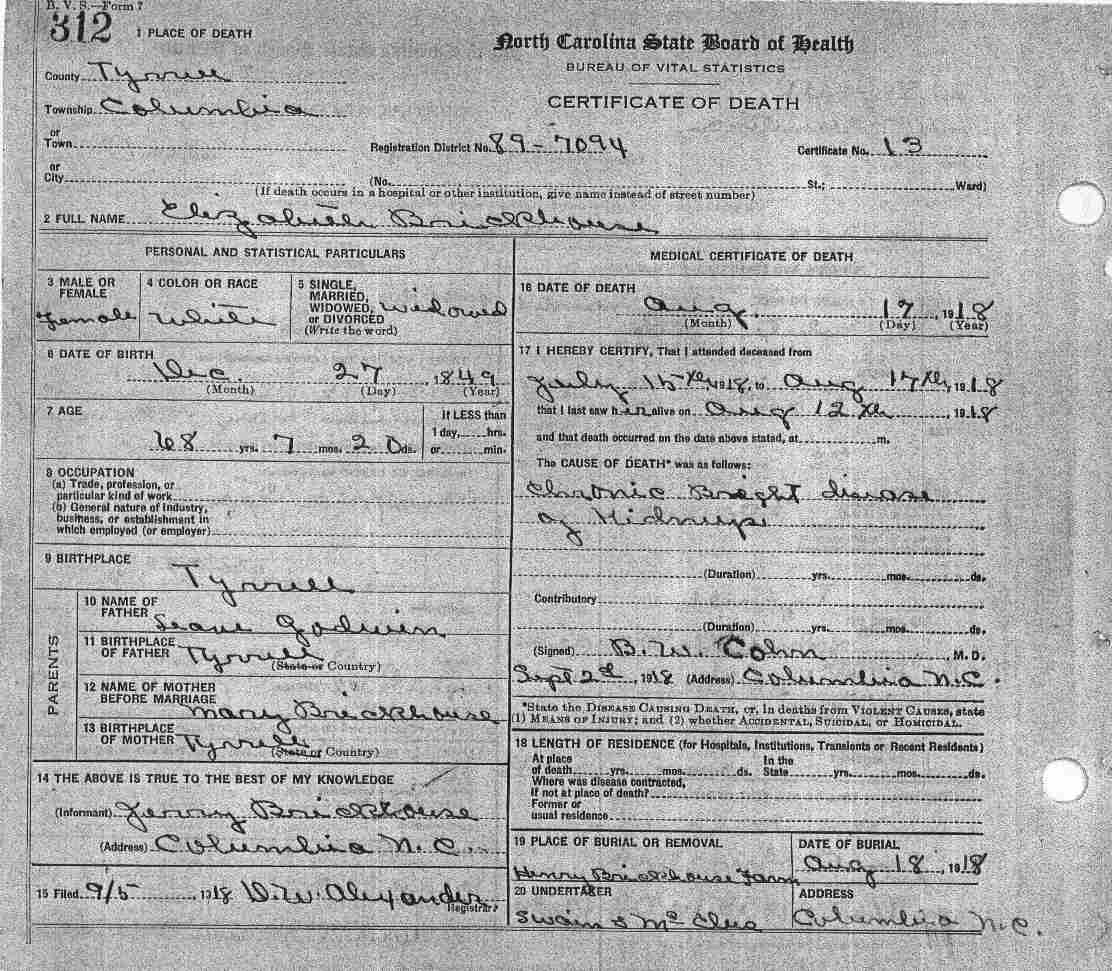 B. V. S.—Form 7
312
1 PLACE OF DEATH
North Carolina State Board of Health
BUREAU OF VITAL STATISTICS
CERTIFICATE OF DEATH
County Tyrrell
Township Columbia
or
Town
Registration District No. 89-7094
Certificate No. 13
or
City
(No.
St.; Ward)
(If death occurs in a hospital or other institution, give name instead of street number)
2 FULL NAME Elizabeth Brickhouse
PERSONAL AND STATISTICAL PARTICULARS
3 MALE OR FEMALE
Female
4 COLOR OR RACE
White
5 SINGLE,
MARRIED,
WIDOWED,
or DIVORCED
(Write the word)
widowed
6 DATE OF BIRTH
Dec. 27, 1849
(Month) (Day) (Year)
7 AGE
68 yrs. 7 mos. 20 ds.
If LESS than
1 day, hrs.
or min.
8 OCCUPATION
(a) Trade, profession, or
particular kind of work
(b) General nature of industry,
business, or establishment in
which employed (or employer)
9 BIRTHPLACE
Tyrrell
PARENTS
10 NAME OF
FATHER
Godwin
11 BIRTHPLACE
OF FATHER
Tyrrell
(State or Country)
12 NAME OF MOTHER
BEFORE MARRIAGE
Mary Brickhouse
13 BIRTHPLACE
OF MOTHER
Tyrrell
(State or Country)
14 THE ABOVE IS TRUE TO THE BEST OF MY KNOWLEDGE
(Informant) Jerry Brickhouse
(Address) Columbia N.C.
15 Filed 9/5, 1918 D.W. Alexander
Registrar
MEDICAL CERTIFICATE OF DEATH
16 DATE OF DEATH
Aug. 17, 1918
(Month) (Day) (Year)
17 I HEREBY CERTIFY, That I attended deceased from
July 15th 1918, to Aug 17th, 1918
that I last saw her alive on Aug 12th, 1918
and that death occurred on the date above stated, at m.
The CAUSE OF DEATH* was as follows:
Chronic Bright disease
of Kidneys
(Duration) yrs. mos. ds.
Contributory
(Duration) yrs. mos. ds.
(Signed) B.W. Cohn, M. D.
Sept 2d, 1918 (Address) Columbia N.C.
*State the DISEASE CAUSING DEATH, or, in deaths from VIOLENT CAUSES, state
(1) MEANS OF INJURY; and (2) whether ACCIDENTAL, SUICIDAL, or HOMICIDAL.
18 LENGTH OF RESIDENCE (for Hospitals, Institutions, Transients or Recent Residents)
At place
of death yrs. mos. ds.
In the
State yrs. mos. ds.
Where was disease contracted,
If not at place of death?
Former or
usual residence
19 PLACE OF BURIAL OR REMOVAL
Henry Brickhouse Farm
DATE OF BURIAL
Aug 18, 1918
20 UNDERTAKER
Swain & Mc Clees
ADDRESS
Columbia N.C.